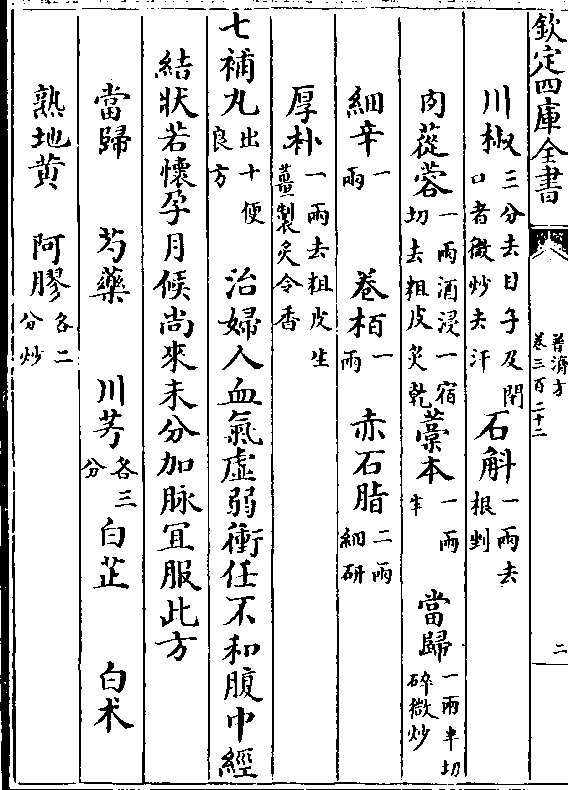 欽定四庫全書
普濟方
卷三百二十二
二
川椒三分去目子及閉口者微炒去汗 石斛一兩去根剉
肉蓯蓉一兩酒浸一宿切去粗皮炙乾 藁本一兩半 當歸一兩半切碎微炒
細辛一兩 卷柏一兩 赤石脂二兩細研
厚朴一兩去粗皮生薑製炙令香
七補丸出十便良方 治婦人血氣虛弱衝任不和腹中經
結狀若懷孕月候尚來未分加脉宜服此方
當歸 芍藥 川芎各三分 白芷 白术
熟地黄 阿膠各二分炒